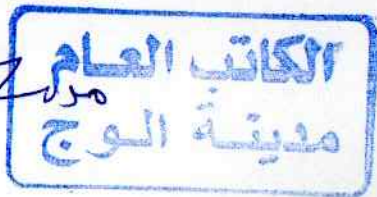 الكاتب العام
مدينة الوج